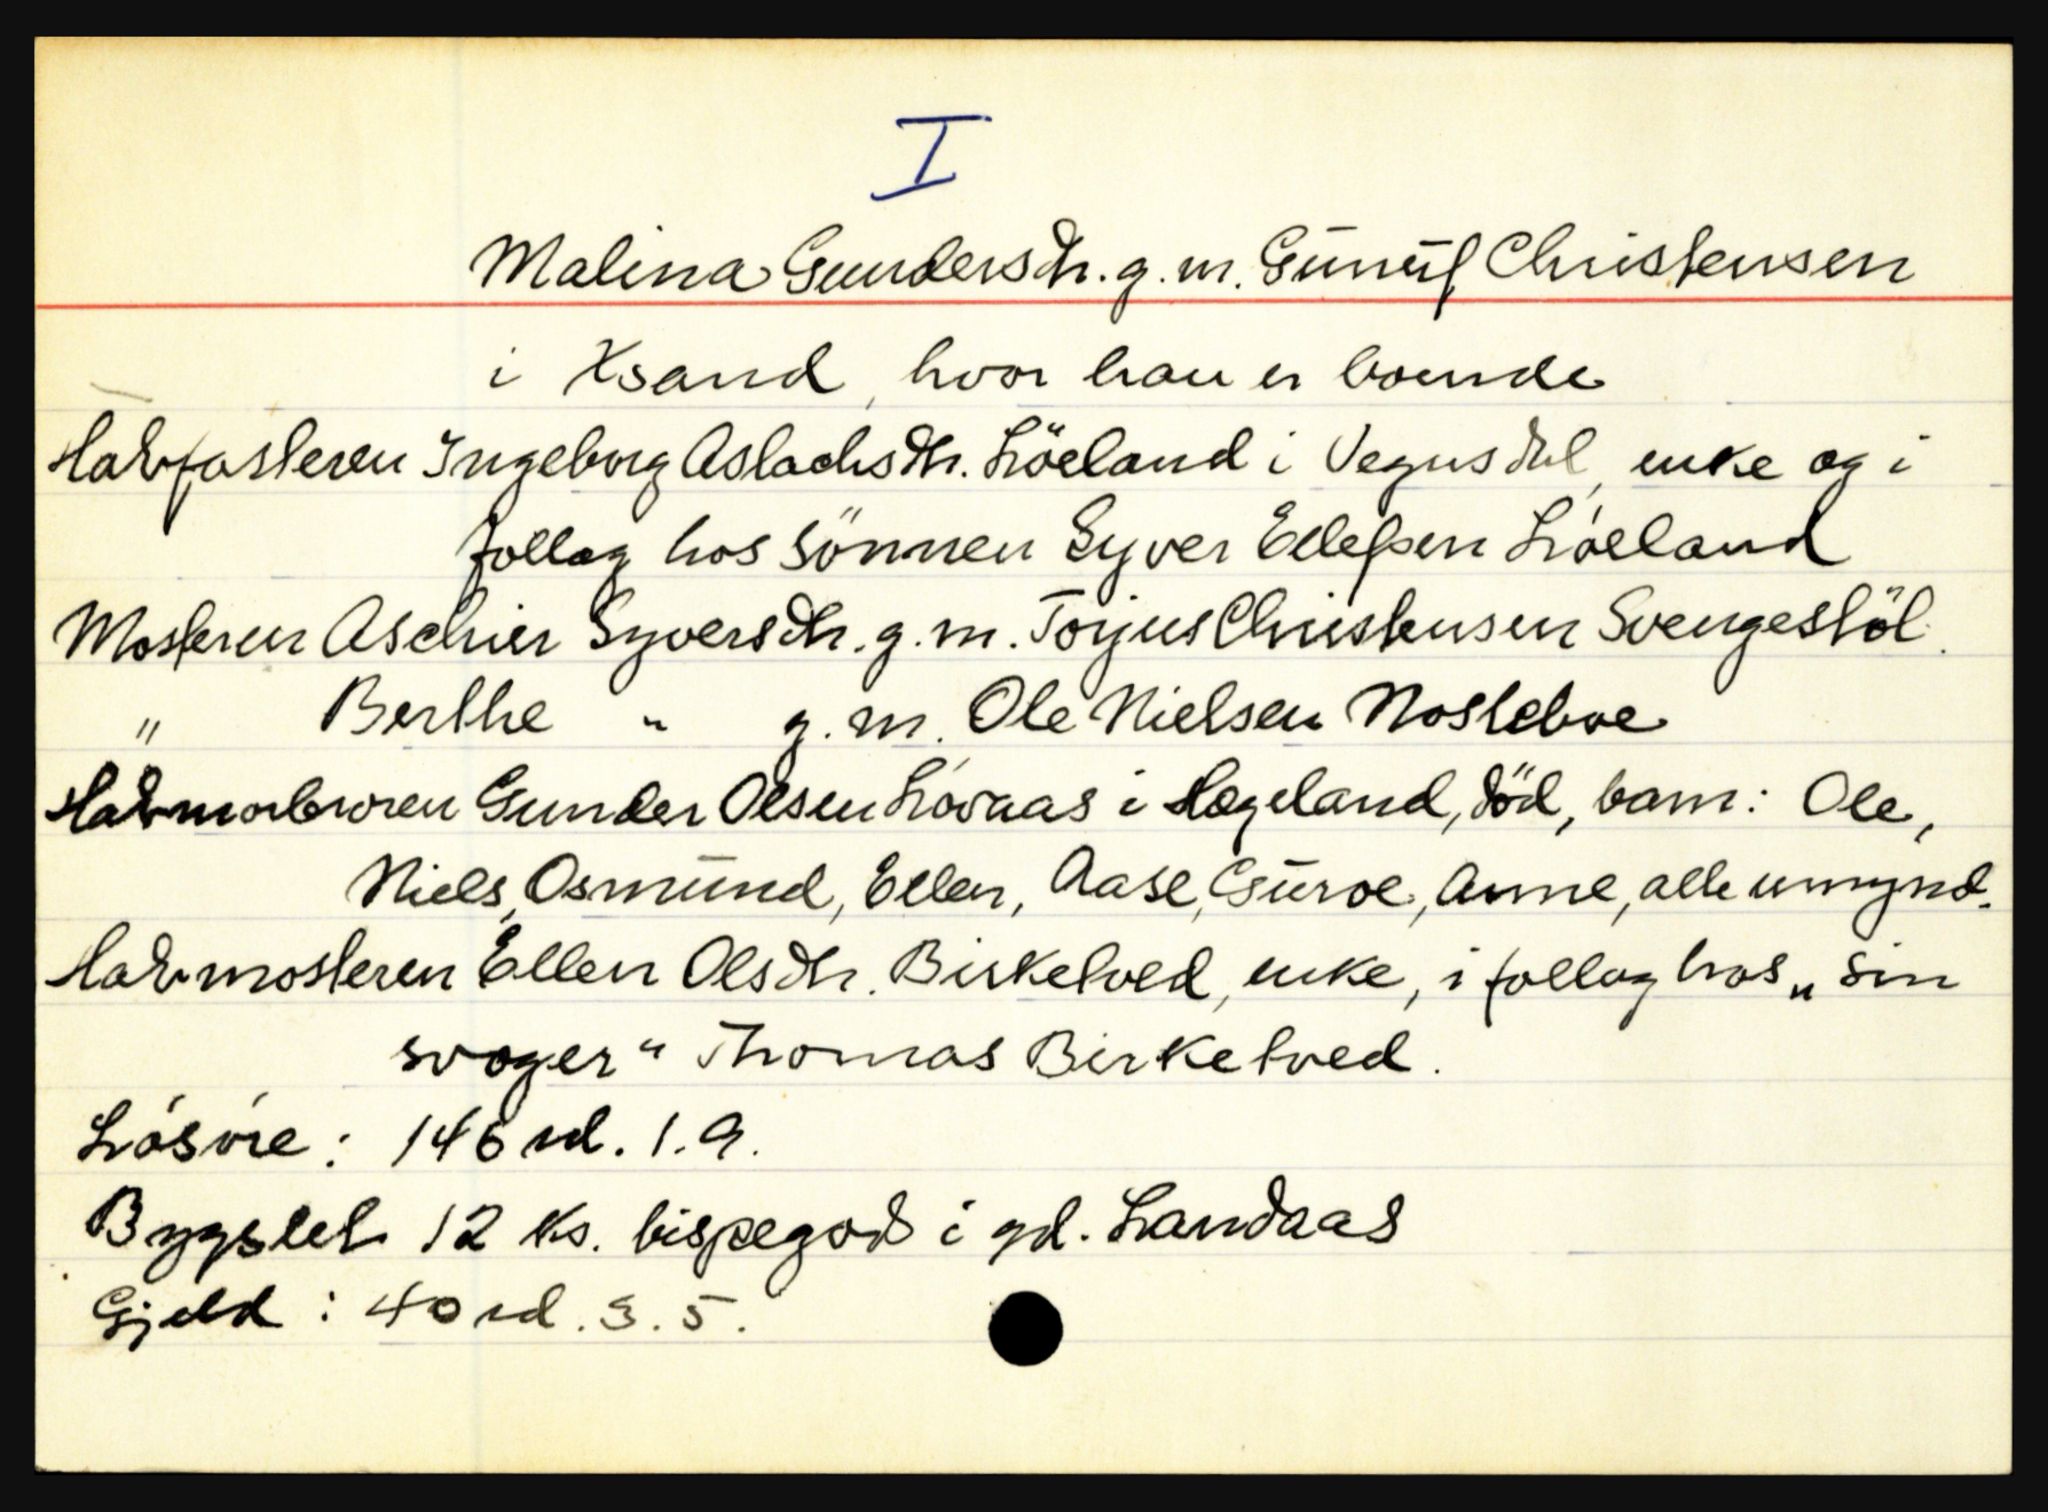 I
Malina Gundersdtr. g.m. Gunuf Christensen
i Xsand, hvor han er boende
Halvfasteren Ingeborg Aslachsdtr. Löeland i Vegusdal, enke og i
follag hos sönnen Syver Ellefsen Löeland
Mosteren Aschier Syversdtr. g.m. Torjus Christensen Svengestöl.
" Berthe " g.m. Ole Nielsen Nosleboe
Halvmorbroren Gunder Olsen Lövaas i Hægeland, död, barn: Ole,
Niels, Osmund, Ellen, Aase, Guroe, Anne, alle umynd.
Halvmosteren Ellen Olsdtr. Birketved, enke, i follag hos „sin
svoger“ Thomas Birketved.
Lösöre: 146 rd. 1. 9.
Bygslet 12 ks. bispegods i gd. Landaas
Gjeld: 40 rd. 3. 5.